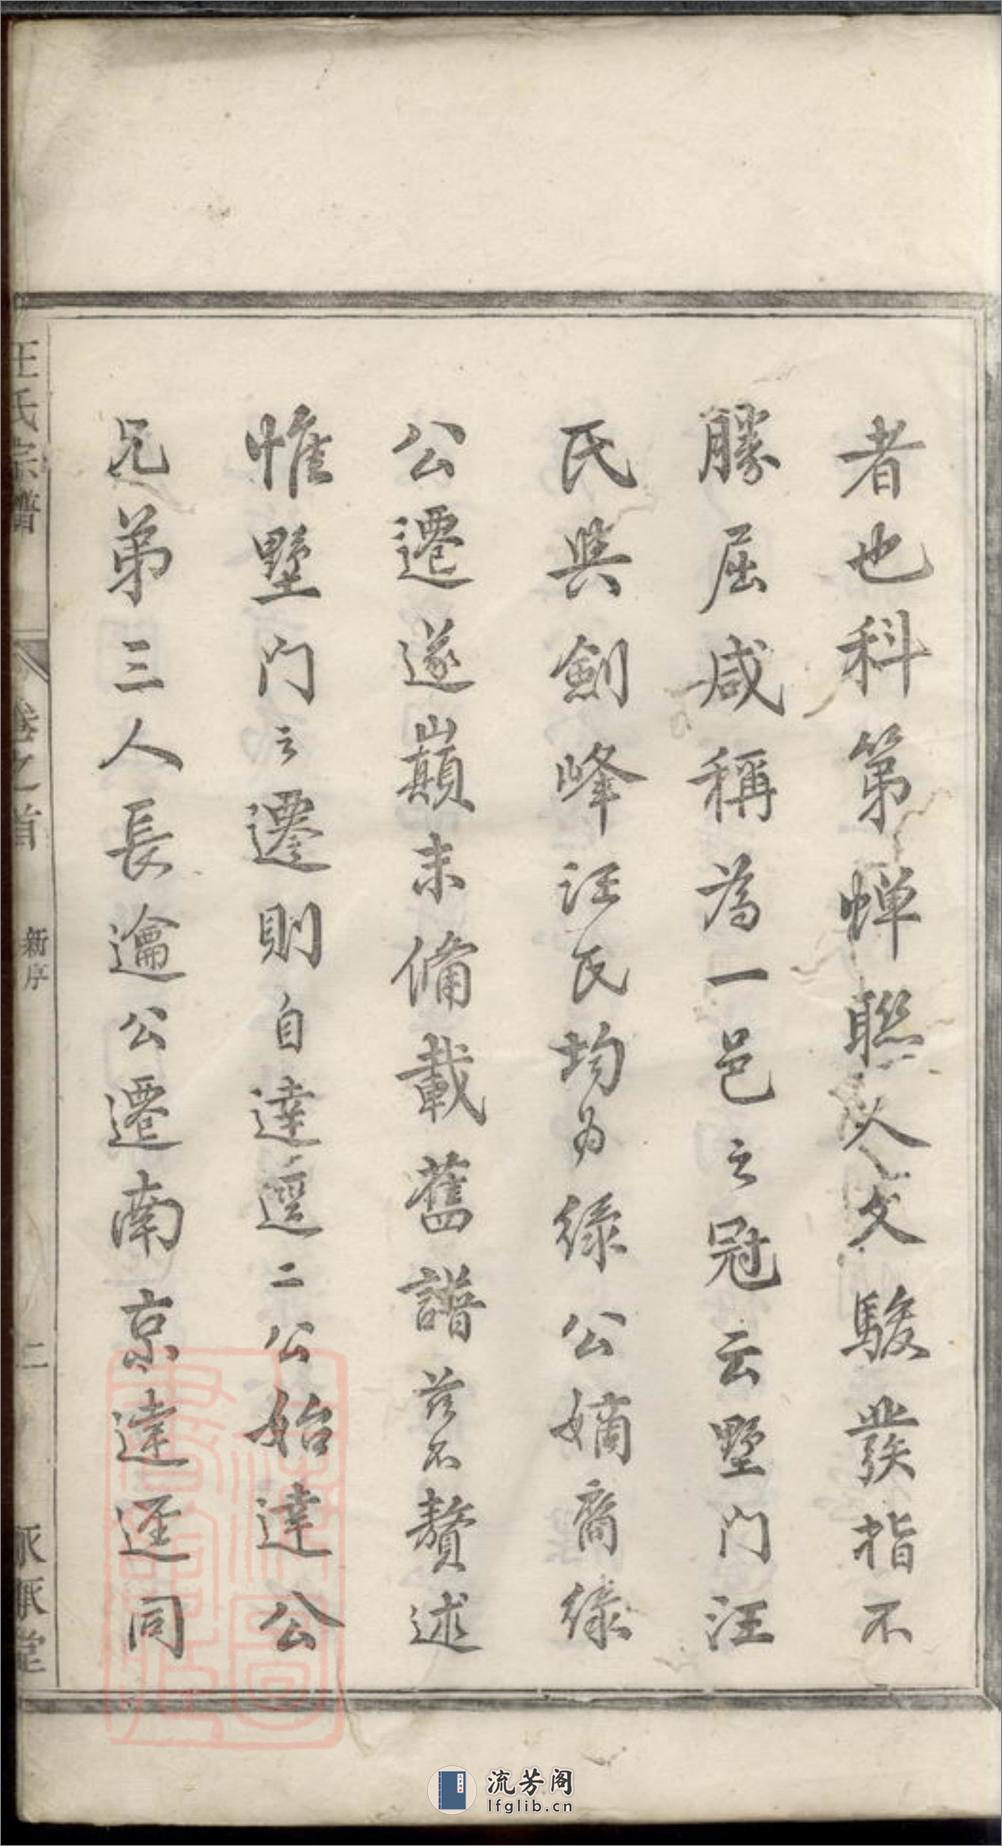 者也科第蟬聯人文駿發指不
勝屈咸稱為一邑之冠云墅門汪
氏與劍峰汪氏均為綠公嫡裔綠
公遷遂巔末備載舊譜茲不贅述
惟墅門之遷則自達遥二公始達公
兄弟三人長逾公遷南京達遥同
汪氏宗譜
卷之首
新序
二
流芳阁
lfglib.cn